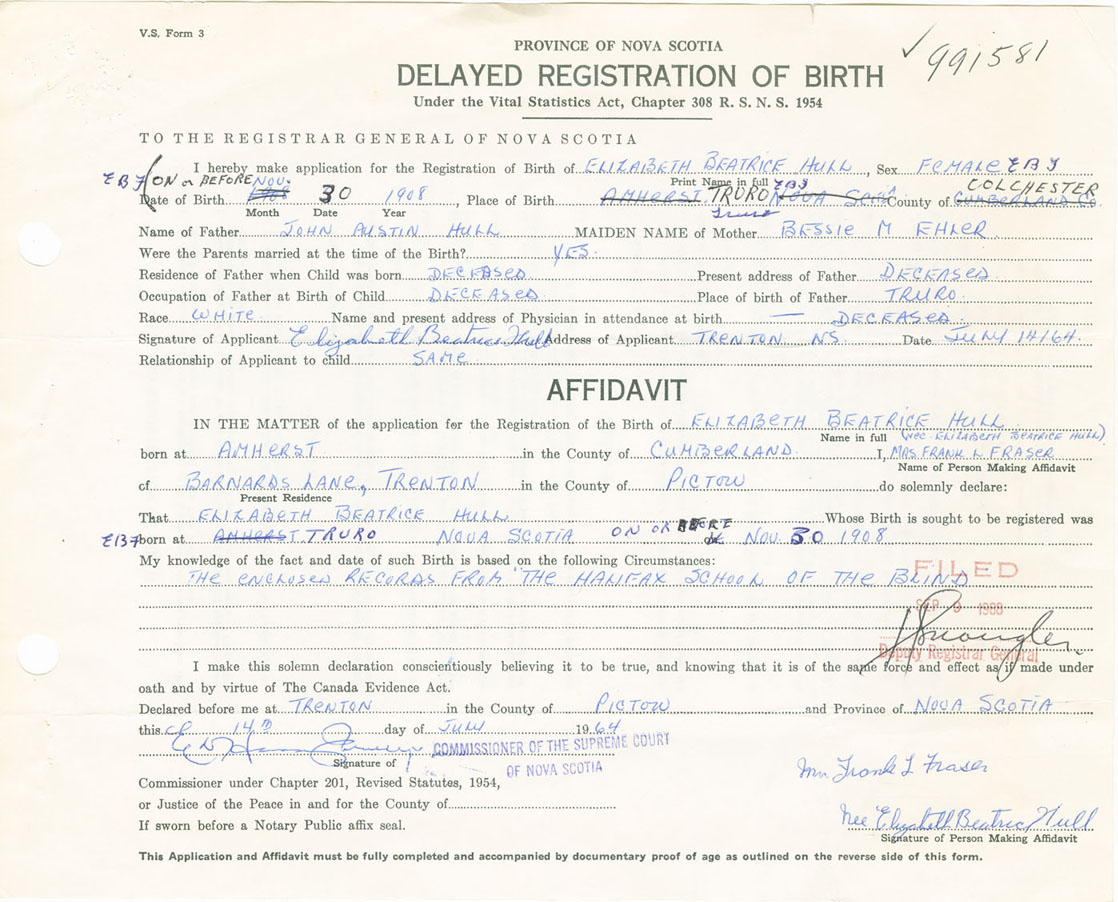 V.S. Form 3
PROVINCE OF NOVA SCOTIA
✓ 991581
DELAYED REGISTRATION OF BIRTH
Under the Vital Statistics Act, Chapter 308 R. S. N. S. 1954
TO THE REGISTRAR GENERAL OF NOVA SCOTIA
I hereby make application for the Registration of Birth of ELIZABETH BEATRICE HULL, Sex FEMALE EBJ
Print Name in full EBJ
EBJ (ON or BEFORE NOV. COLCHESTER
Date of Birth 1908 30 1908, Place of Birth AMHERST TRURO NOVA SCOTIA County of CUMBERLAND CO.
Month Date Year Truro
Name of Father JOHN AUSTIN HULL MAIDEN NAME of Mother BESSIE M EHLER
Were the Parents married at the time of the Birth? YES.
Residence of Father when Child was born DECEASED Present address of Father DECEASED
Occupation of Father at Birth of Child DECEASED Place of birth of Father TRURO.
Race WHITE Name and present address of Physician in attendance at birth — DECEASED
Signature of Applicant Elizabeth Beatrice Hull Address of Applicant TRENTON NS. Date JULY 14/64.
Relationship of Applicant to child SAME
AFFIDAVIT
IN THE MATTER of the application for the Registration of Birth of ELIZABETH BEATRICE HULL
Name in full (nee ELIZABETH BEATRICE HULL)
born at AMHERST in the County of CUMBERLAND. I, MRS. FRANK L FRASER
Name of Person Making Affidavit
of BARNARDS LANE, TRENTON in the County of PICTOU do solemnly declare:
Present Residence
That ELIZABETH BEATRICE HULL Whose Birth is sought to be registered was
EBJ born at AMHERST. TRURO NOVA SCOTIA ON OR BEFORE NOV. 30 1908
My knowledge of the fact and date of such Birth is based on the following Circumstances:
THE ENCLOSED RECORDS FROM "THE HALIFAX SCHOOL OF THE BLIND
FILED
SEP 9 1988
Deputy Registrar General
I make this solemn declaration conscientiously believing it to be true, and knowing that it is of the same force and effect as if made under
oath and by virtue of The Canada Evidence Act.
Declared before me at TRENTON in the County of PICTOU and Province of NOVA SCOTIA
this 14th day of JULY 1964
COMMISSIONER OF THE SUPREME COURT
OF NOVA SCOTIA
Signature of
Mrs Frank L Fraser
Commissioner under Chapter 201, Revised Statutes, 1954,
or Justice of the Peace in and for the County of
Nee Elizabeth Beatrice Hull
If sworn before a Notary Public affix seal.
Signature of Person Making Affidavit
This Application and Affidavit must be fully completed and accompanied by documentary proof of age as outlined on the reverse side of this form.